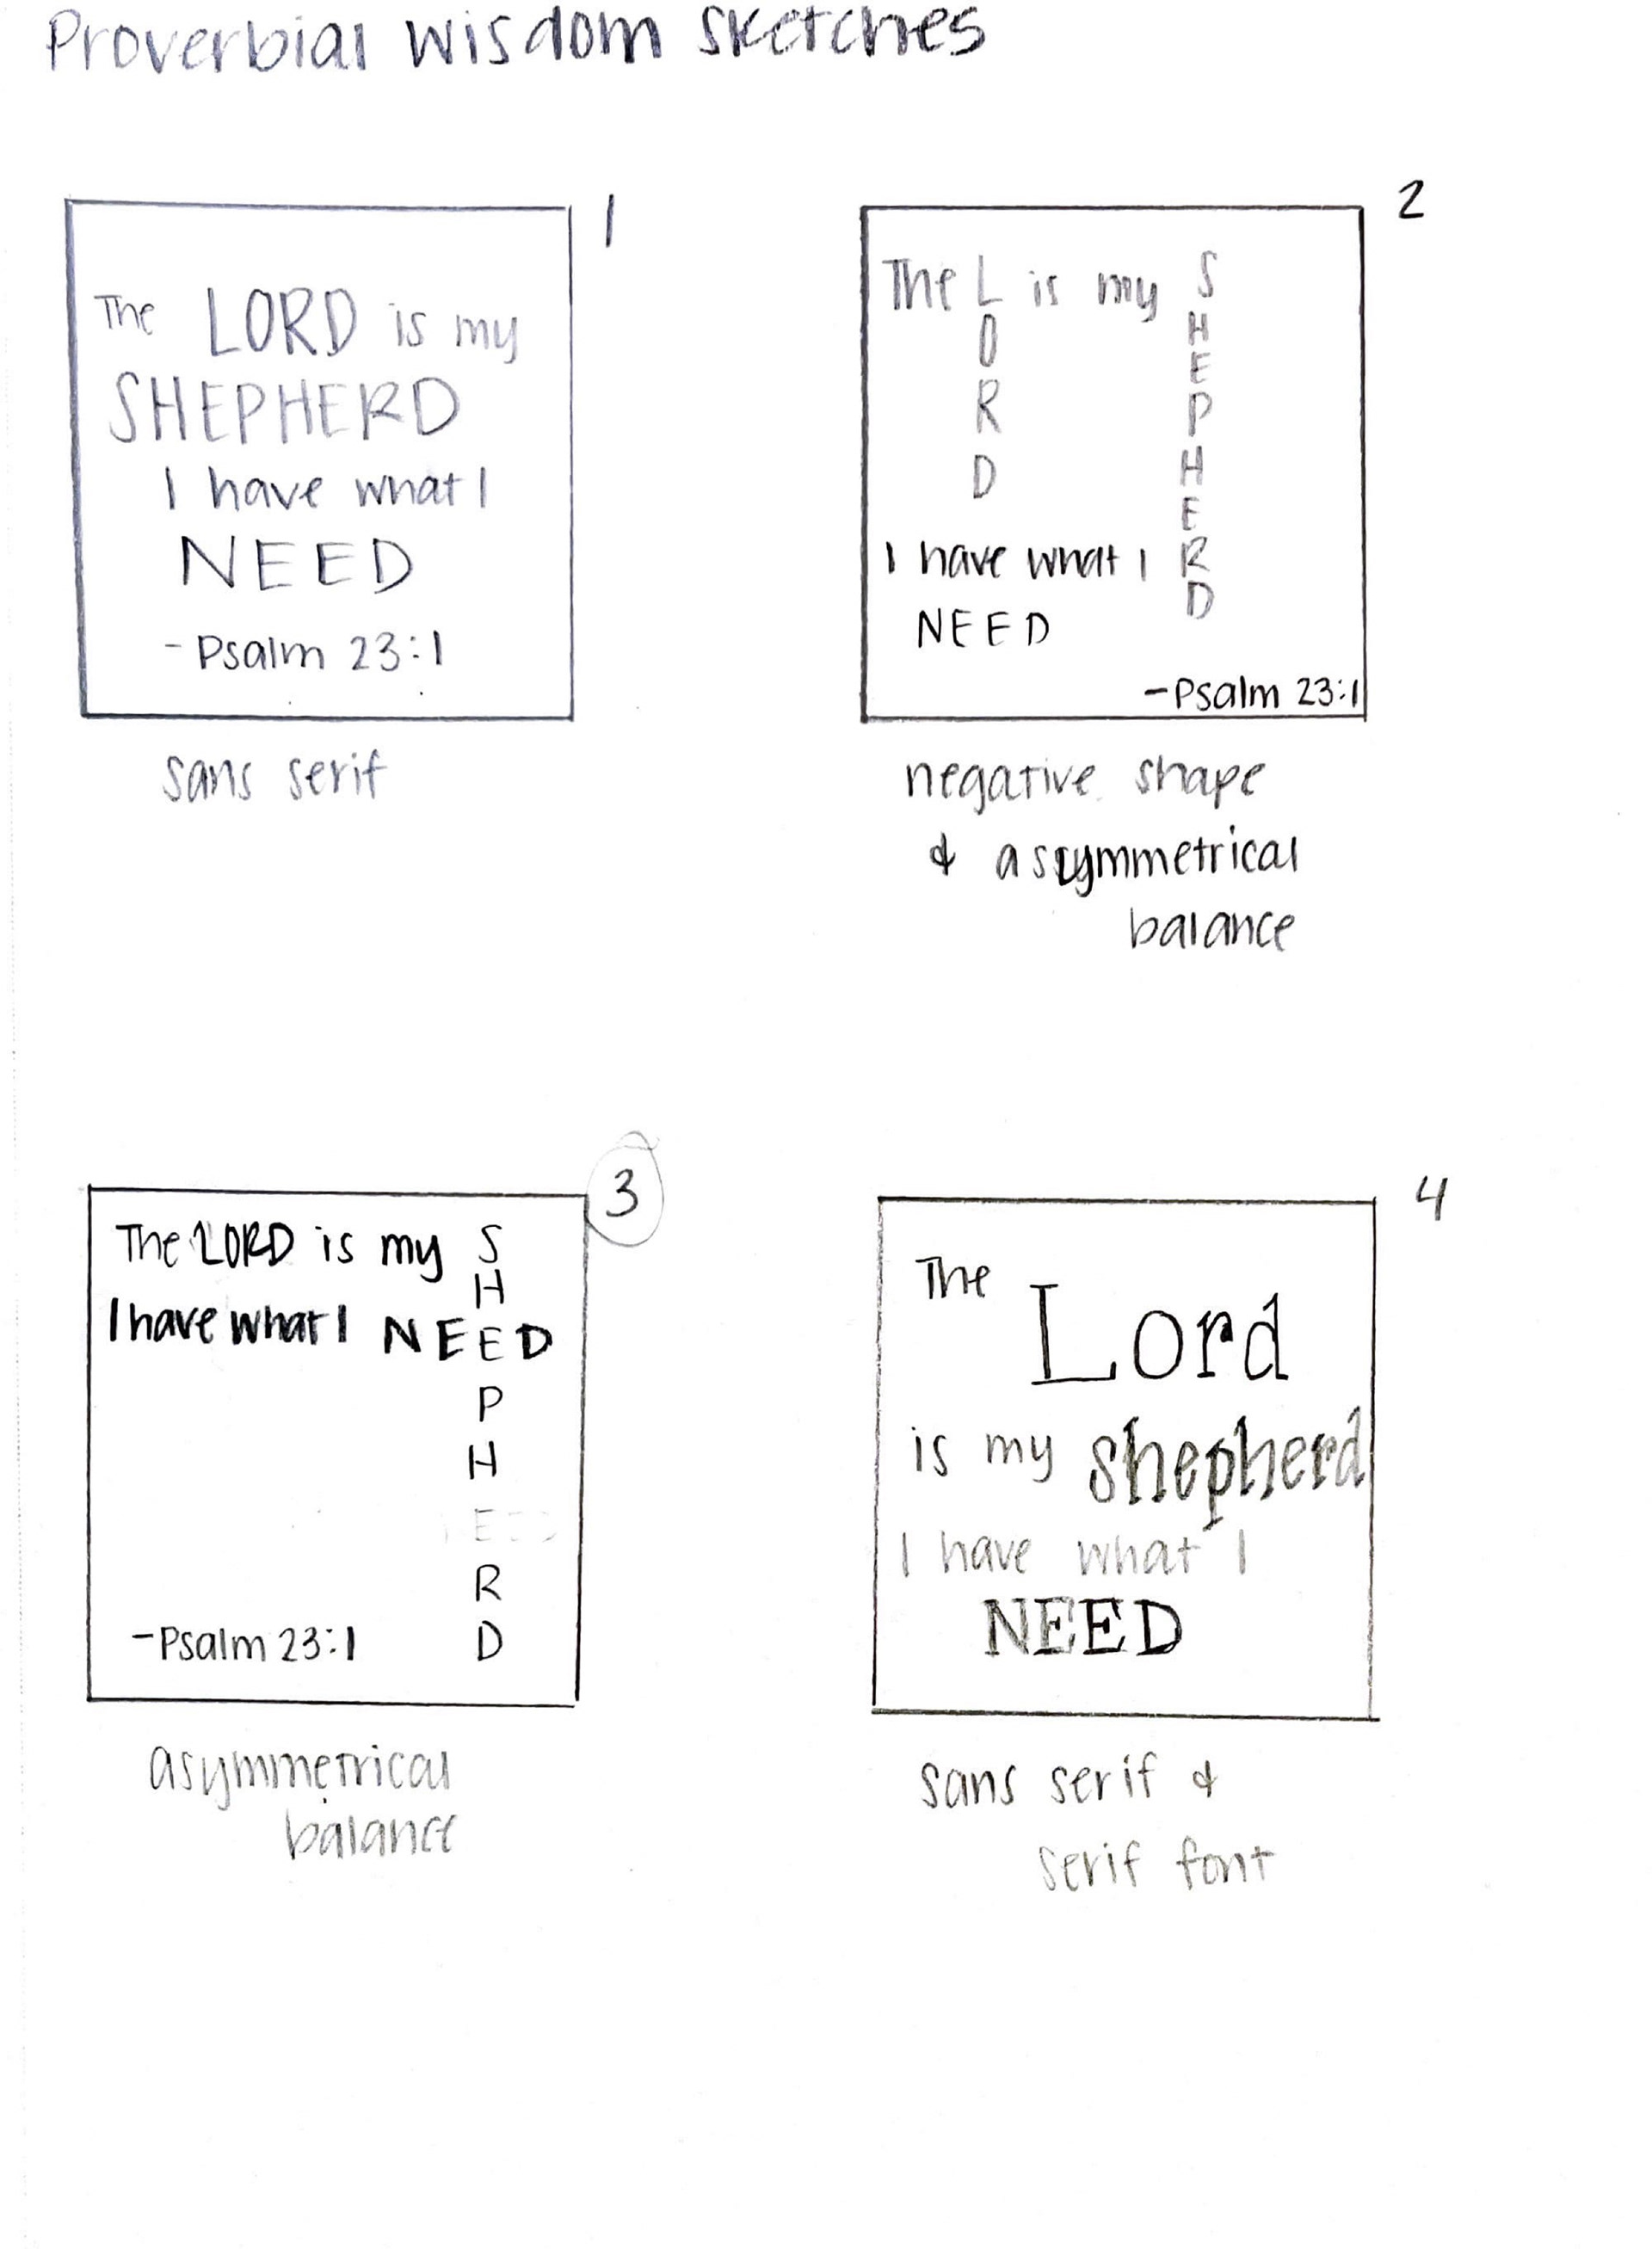 Proverbial wisdom sketches
1
The LORD is my
SHEPHERD
I have what I
NEED
- Psalm 23:1
sans serif
2
The LORD is my SHEPHERD
I have what I
NEED
-Psalm 23:1
negative shape
& assymmetrical
balance
3
The LORD is my SHEPHERD
I have what I NEED
-Psalm 23:1
asymmetrical
balance
4
The
Lord
is my shepherd
I have what I
NEED
sans serif &
serif font